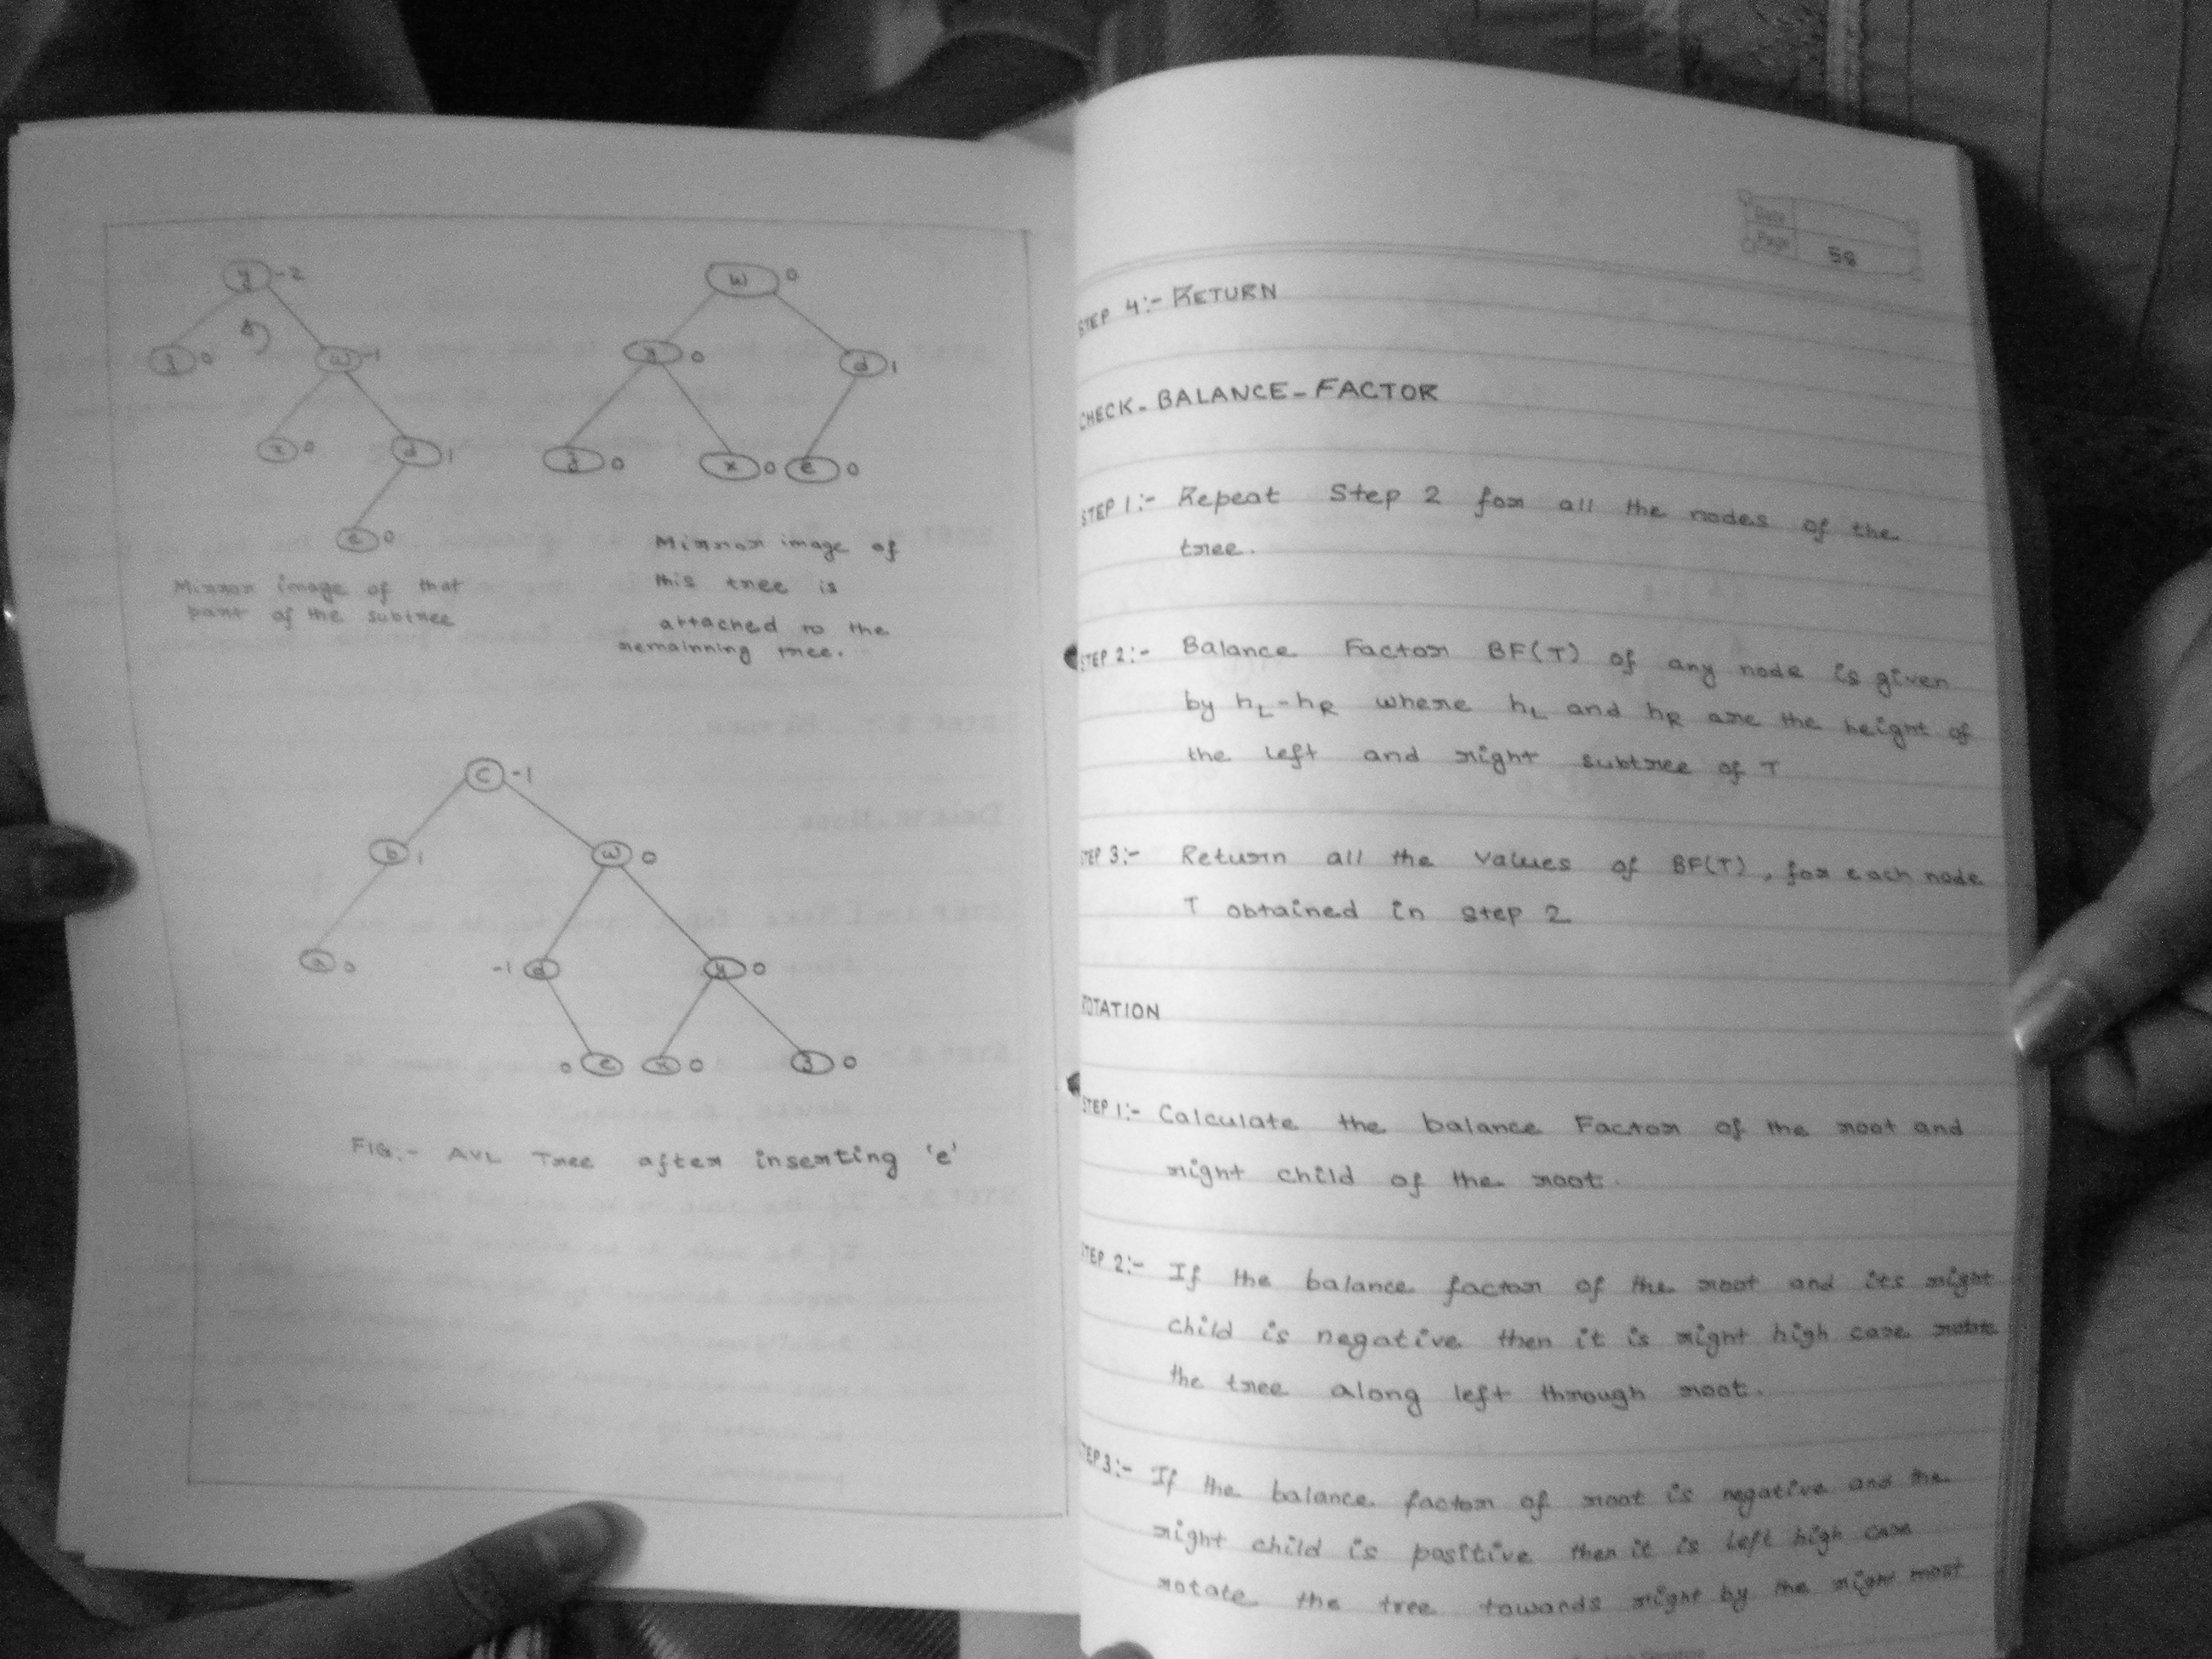 y -2
z 0
w -1
x 0
d 1
e 0
Mirror image of that
part of the subtree
w 0
y 0
d 1
z 0
x 0
e 0
Mirror image of
this tree is
attached to the
remainning tree.
c -1
b 1
w 0
a 0
-1 d
y 0
0 e
x 0
z 0
FIG:- AVL Tree after inserting 'e'
Date
Page 58
STEP 4:- RETURN
CHECK-BALANCE-FACTOR
STEP 1:- Repeat Step 2 for all the nodes of the
tree.
STEP 2:- Balance Factor BF(T) of any node is given
by hL-hR where hL and hR are the height of
the left and right subtree of T
STEP 3:- Return all the values of BF(T), for each node
T obtained in step 2
ROTATION
STEP 1:- Calculate the balance Factor of the root and
right child of the root.
STEP 2:- If the balance factor of the root and its right
child is negative then it is right high case rotate
the tree along left through root.
STEP 3:- If the balance factor of root is negative and the
right child is positive then it is left high case
rotate the tree towards right by the right most